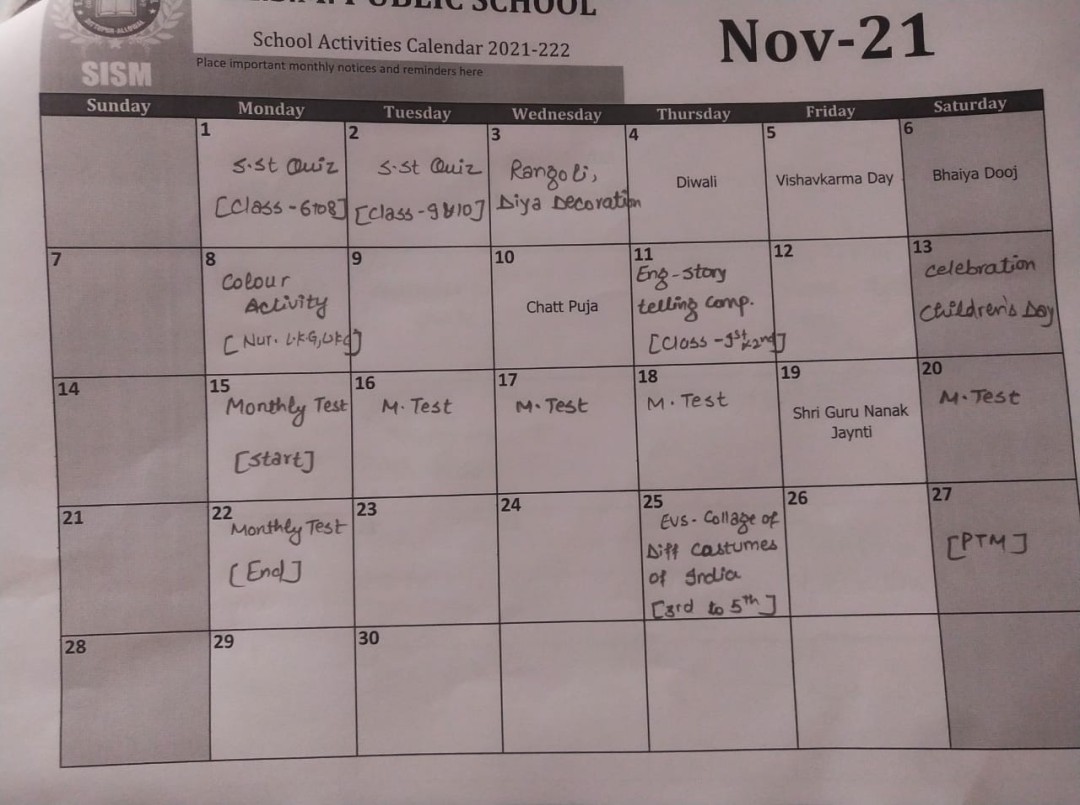 PUBLIC SCHOOL
School Activities Calendar 2021-222
Nov-21
SISM
Place important monthly notices and reminders here
Sunday Monday Tuesday Wednesday Thursday Friday Saturday
1
S.St Quiz
[Class-6to8]
2
S.St Quiz
[Class-9&10]
3
Rangoli,
Diya Decoration
4
Diwali
5
Vishavkarma Day
6
Bhaiya Dooj
7
8
Colour
Activity
[Nur. L.K.G, U.K.G]
9
10
Chatt Puja
11
Eng-story
telling comp.
[Class-1st & 2nd]
12
13
celebration
Children's Day
14
15
Monthly Test
[Start]
16
M. Test
17
M. Test
18
M. Test
19
Shri Guru Nanak
Jaynti
20
M. Test
21
22
Monthly Test
[End]
23
24
25
EVS- Collage of
Diff Costumes
of India
[3rd to 5th]
26
27
[PTM]
28
29
30